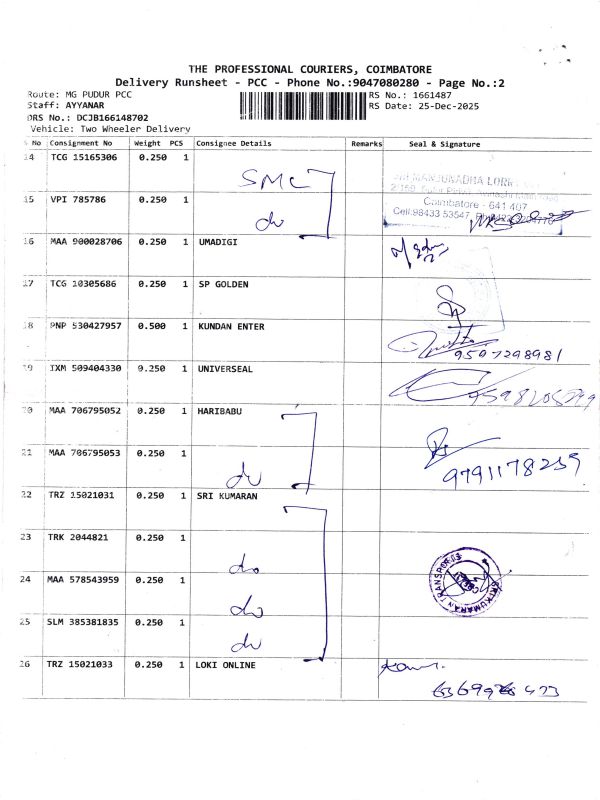 THE PROFESSIONAL COURIERS, COIMBATORE
Delivery Runsheet - PCC - Phone No.:9047080280 - Page No.:2
Route: MG PUDUR PCC RS No.: 1661487
Staff: AYYANAR RS Date: 25-Dec-2025
DRS No.: DCJB166148702
Vehicle: Two Wheeler Delivery
No Consignment No Weight PCS Consignee Details Remarks Seal & Signature
14 TCG 15165306 0.250 1 SMC
15 VPI 785786 0.250 1 do
SRI MANJUNADHA
Coimbatore - 641 407
Cell:98433 53547
16 MAA 900028706 0.250 1 UMADIGI
17 TCG 10305686 0.250 1 SP GOLDEN
18 PNP 530427957 0.500 1 KUNDAN ENTER 9597298981
19 IXM 509404330 0.250 1 UNIVERSEAL
20 MAA 706795052 0.250 1 HARIBABU
21 MAA 706795053 0.250 1 do 9791178259
22 TRZ 15021031 0.250 1 SRI KUMARAN
23 TRK 2044821 0.250 1 do
24 MAA 578543959 0.250 1 do
SRI KUMARAN TRANSPORTS
25 SLM 385381835 0.250 1 do
26 TRZ 15021033 0.250 1 LOKI ONLINE